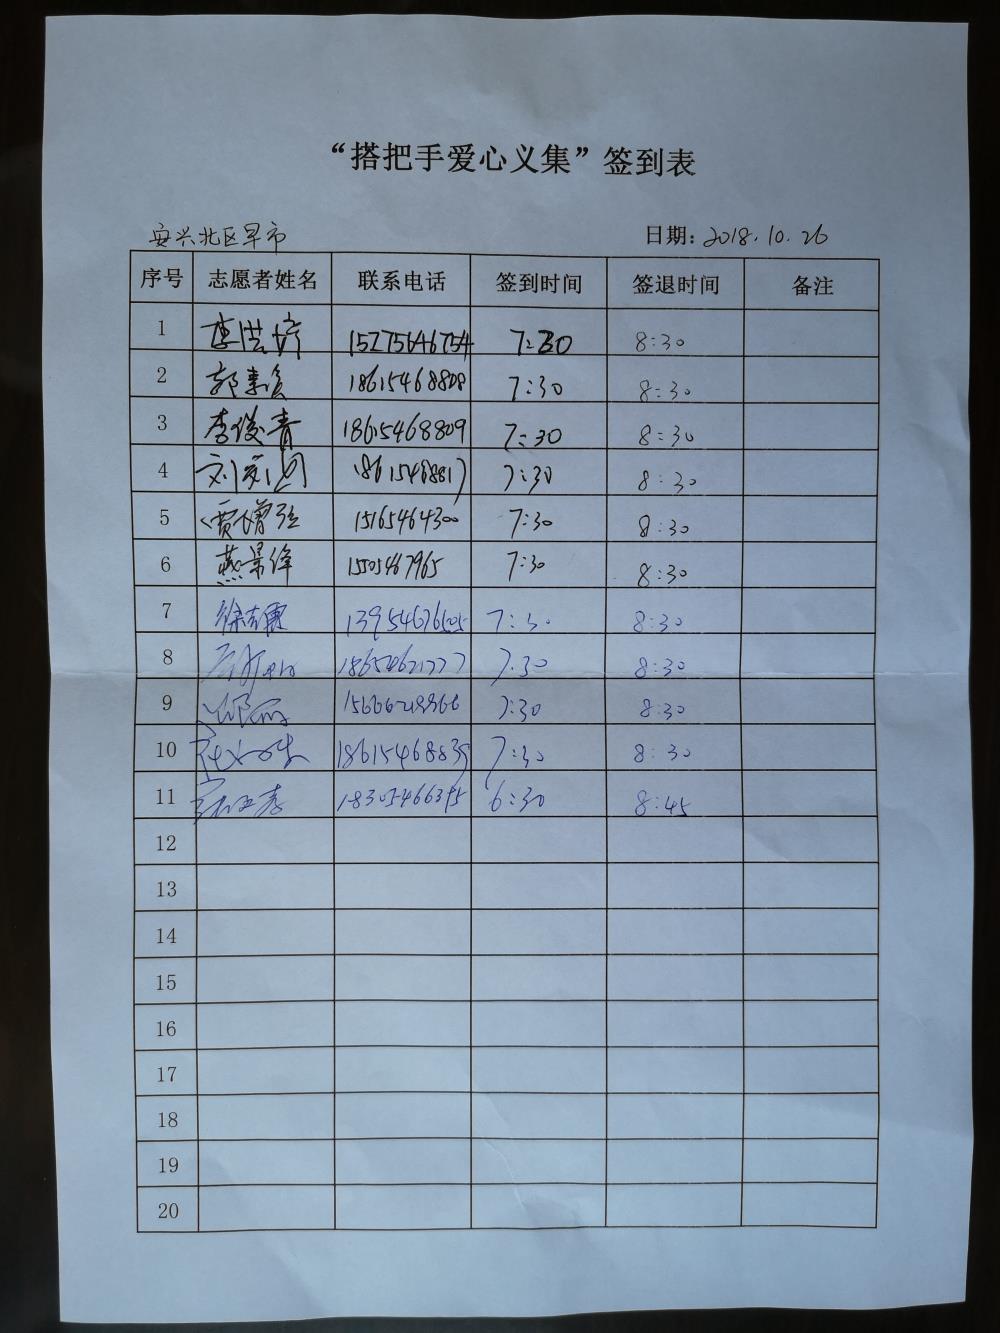 “搭把手爱心义集”签到表
安兴北区早市 日期：2018.10.26
序号 志愿者姓名 联系电话 签到时间 签退时间 备注
1 李洪婷 15275646754 7:30 8:30
2 郭 18615468808 7:30 8:30
3 李俊青 18615468809 7:30 8:30
4 刘 18615468817 7:30 8:30
5 贾增强 15165464300 7:30 8:30
6 燕景锋 15505467965 7:30 8:30
7 徐 7:30 8:30
8 18654621777 7:30 8:30
9 邱丽 7:30 8:30
10 18615468835 7:30 8:30
11 6:30 8:45
12
13
14
15
16
17
18
19
20